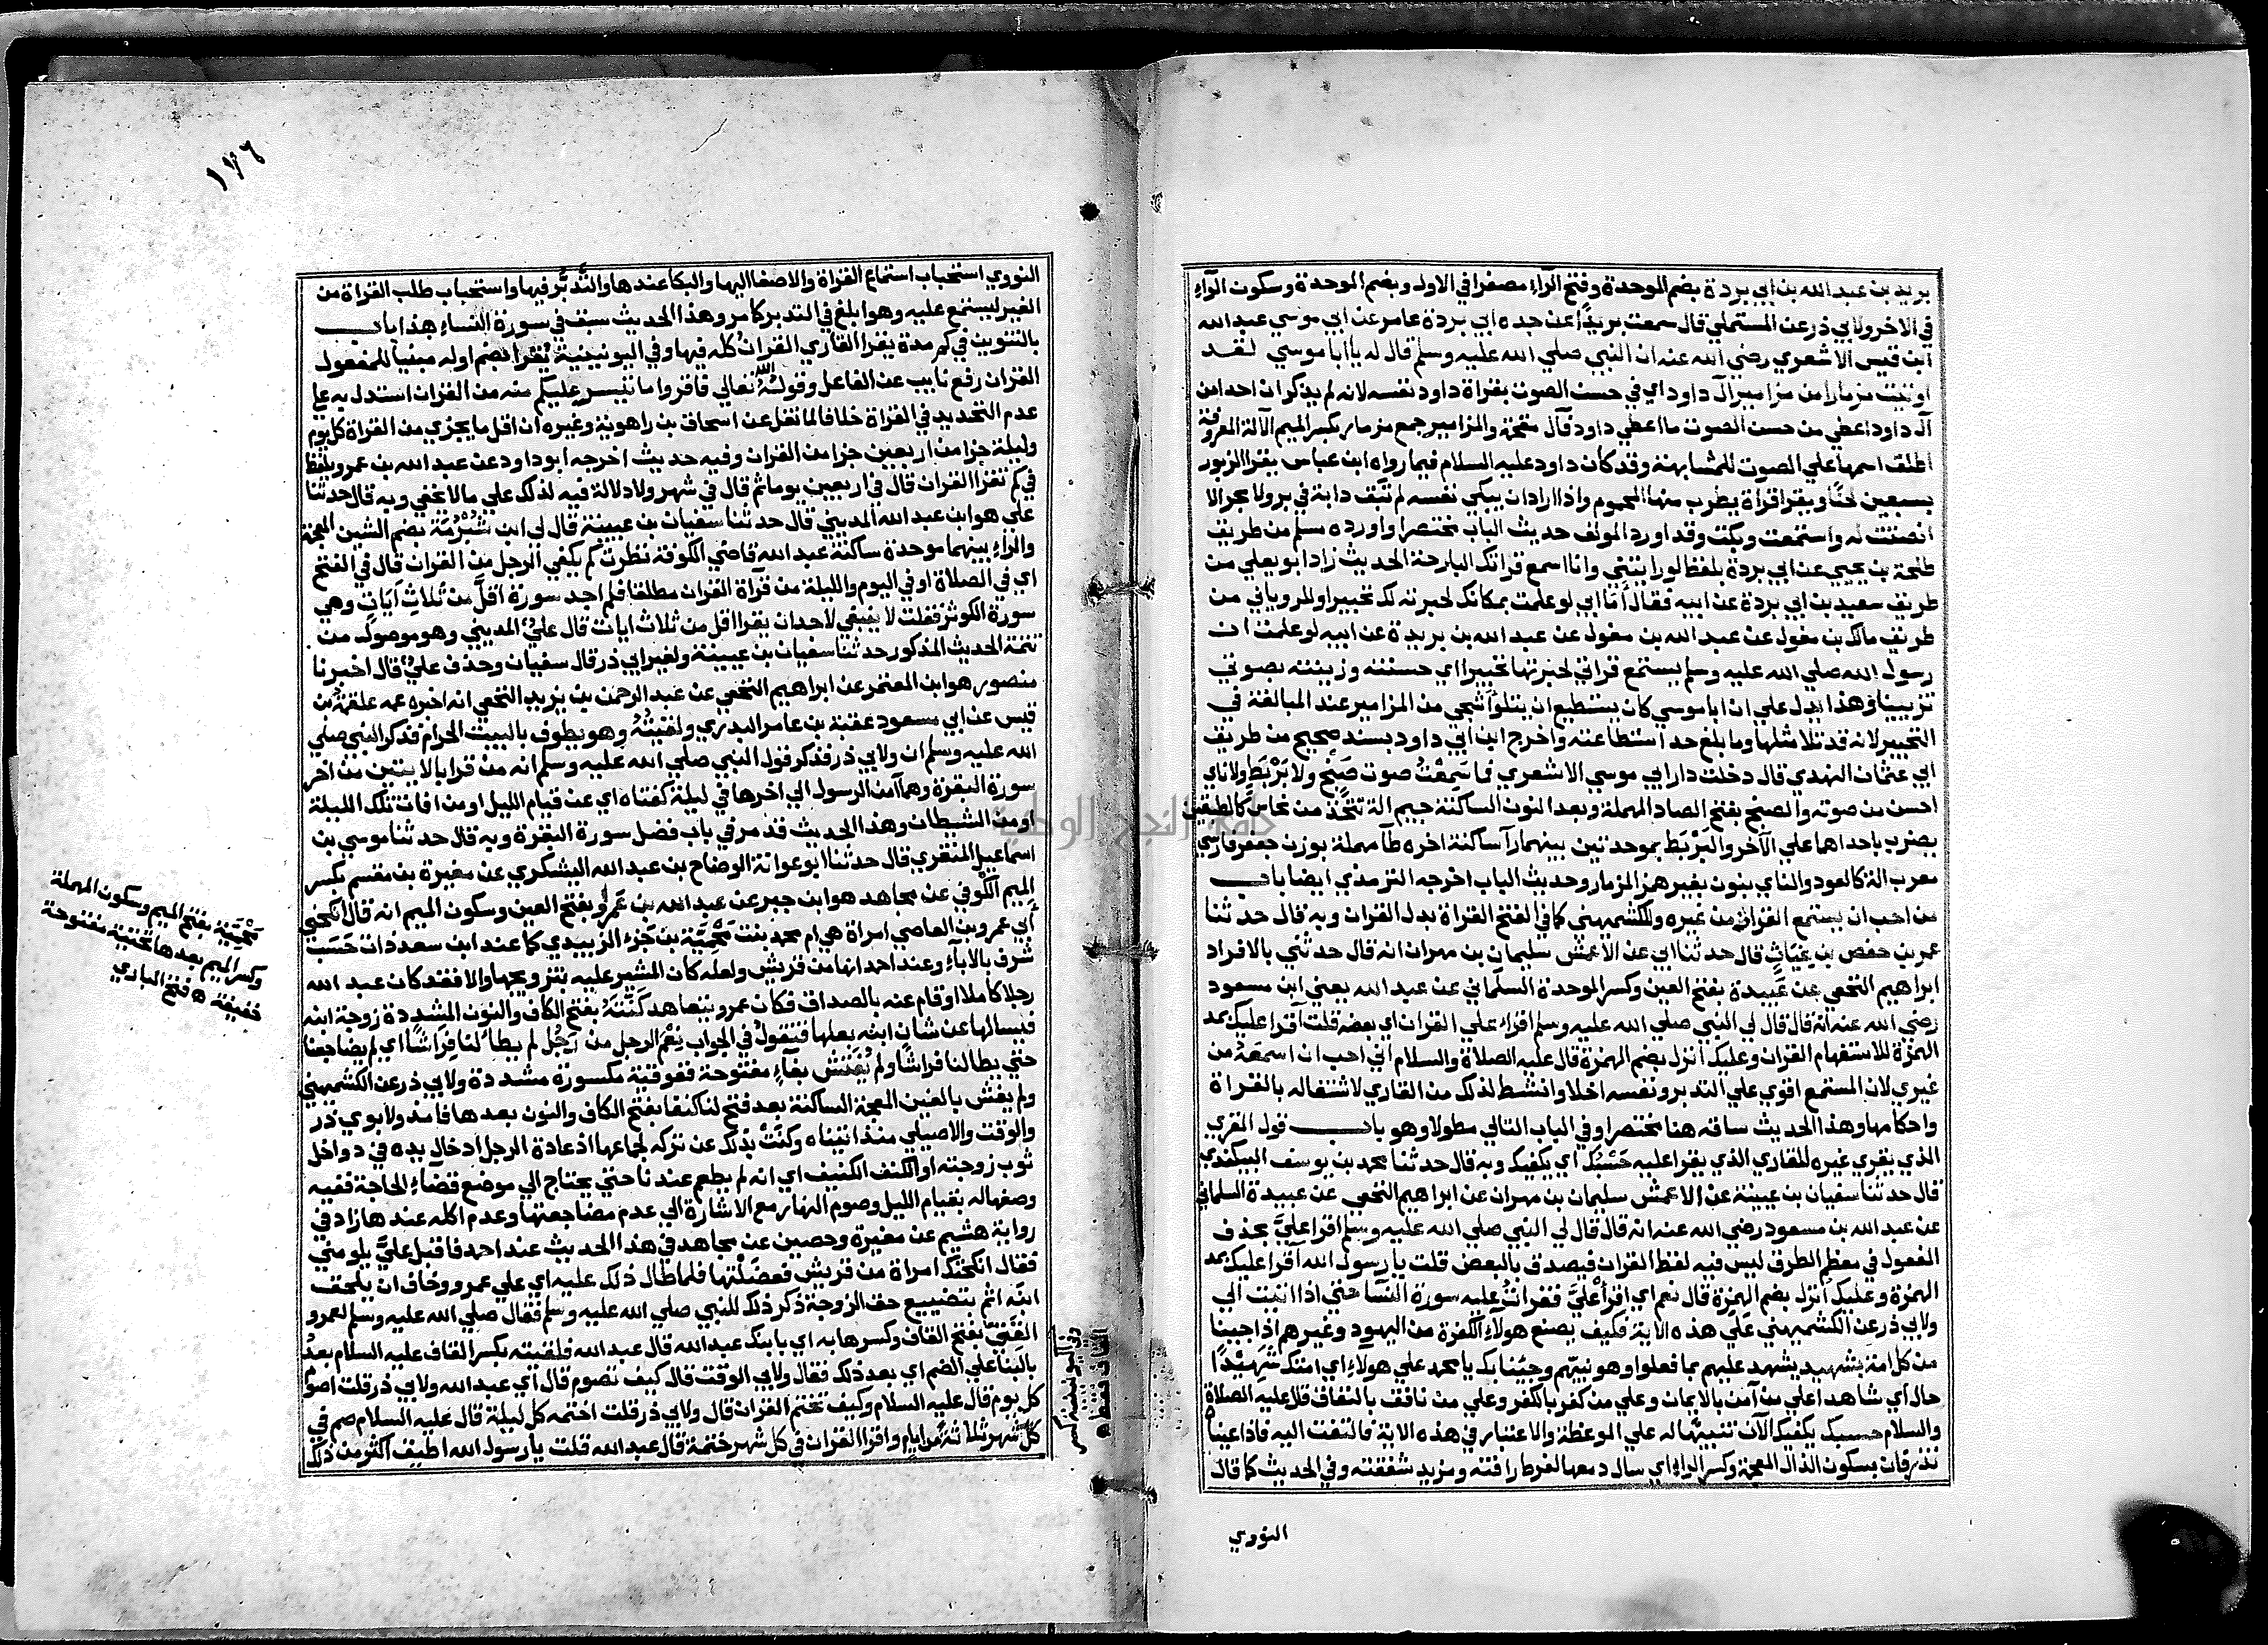 بريد بن عبد الله بن ابي بردة بضم الموحدة وفتح الراء مصغرا في الاول وبضم الموحدة وسكون الراء
في الاخر ولابي ذر عن المستملي قال سمعت بريدا عن جده ابي بردة عامر عن ابي موسي عبد الله
ابن قيس الاشعري رضي الله عنه ان النبي صلي الله عليه وسلم قال له يا ابا موسي لقد
اوتيت مزمارا من مزامير آل داود اي في حسن الصوت بقراة داود نفسه لانه لم يذكر ان احدا من
آل داود اعطي من حسن الصوت ما اعطي داود قال والمزامير جمع مزمار بكسر الميم الآلة المعروفة
اطلق اسمها علي الصوت للمشابهة وقد كان داود عليه السلام فيما رواه ابن عباس يقرا الزبور
بسبعين لحنا ويقرا قراة يطرب منها المحموم واذا اراد ان يبكي نفسه لم تبق دابة في بر ولا بحر الا
انصتت له واستمعت وبكت وقد اورد المولف حديث الباب مختصرا واورده مسلم من طريق
طلحة بن يحيي عن ابي بردة بلفظ لو رايتني وانا اسمع قراتك البارحة الحديث زاد ابو يعلي من
طريق سعيد بن ابي بردة عن ابيه فقال أما اني لو علمت بمكانك لحبرته لك تحبيرا وللروياني من
طريق مالك بن مغول عن عبد الله بن مغول عن عبد الله بن بريدة عن ابيه لو علمت ان
رسول الله صلي الله عليه وسلم يستمع قراتي لحبرتها تحبيرا اي حسنته وزينته بصوتي
تزيينا وهذا يدل علي ان ابا موسي كان يستطيع ان يتلو اشجي من المزامير عند المبالغة في
التحبير لانه قد تلا مثلها وما بلغ حد استطاعته واخرج ابن ابي داود بسند صحيح من طريق
ابي عثمان النهدي قال دخلت دار ابي موسي الاشعري فما سَمِعْتُ صوت صَنْجٍ ولا بَرْبَطٍ ولا ناي
احسن من صوته والصنج بفتح الصاد المهملة وبعد النون الساكنة جيم الة تتخذ من نحاس كالطبقين
يضرب باحداهما علي الآخر والبَرْبَط بموحدتين بينهما را ساكنة اخره طا مهملة بوزن جعفر فارسي
معرب الة كالعود والناي بنون بغير همز المزمار وحديث الباب اخرجه الترمذي ايضا باب
من احب ان يستمع القران من غيره وللكشميهني كما في الفتح القراة بدل القران وبه قال حدثنا
عمر بن حفص بن غياث قال حدثنا ابي عن الاعمش سليمان بن مهران انه قال حدثني بالافراد
ابراهيم النخعي عن عَبيدة بفتح العين وكسر الموحدة السلماني عن عبد الله يعني ابن مسعود
رضي الله عنه انه قال قال لي النبي صلي الله عليه وسلم اقراء علي القران اي بعضه قلت آقرا عليك بمد
الهمزة للاستفهام القران وعليك انزل بضم الهمزة قال عليه الصلاة والسلام اني احب ان اسمعَهُ من
غيري لان المستمع اقوي علي التدبر ونفسه اخلا وانشط لذلك من القاري لاشتغاله بالقراة
واحكامها وهذا الحديث ساقه هنا مختصرا وفي الباب التالي مطولا وهو باب قول المقري
الذي يقري غيره للقاري الذي يقرا عليه حَسْبُكَ اي يكفيك وبه قال حدثنا محمد بن يوسف البيكندي
قال حدثنا سفيان بن عيينة عن الاعمش سليمان بن مهران عن ابراهيم النخعي عن عبيدة السلماني
عن عبد الله بن مسعود رضي الله عنه انه قال قال لي النبي صلي الله عليه وسلم اقرا عليَّ بحذف
المفعول في معظم الطرق ليس فيه لفظ القران فيصدق بالبعض قلت يا رسول الله آقرا عليك بمد
الهمزة وعليك اُنزل بضم الهمزة قال نعم اي اقرأ عليَّ فقراتُ عليه سورة النسا حتي اذا اتيت الي
ولابي ذر عن الكشميهني علي هذه الاية فكيف يصنع هولاء الكفرة من اليهود وغيرهم اذا جينا
من كل امة بشهيد يشهد عليهم بما فعلوا وهو نبيهم وجئنا بك يا محمد علي هولاء اي امتك شَهِيْدًا
حال اي شاهدا علي من آمن بالايمان وعلي من كفر بالكفر وعلي من نافق بالنفاق قال عليه الصلاة
والسلام حسبك يكفيك الآن تنبيها له علي الموعظة والاعتبار في هذه الاية فالتفت اليه فاذا عيناه
تذرفان بسكون الذال المعجمة وكسر الراء اي سال دمعها لفرط رافته ومزيد شفقته وفي الحديث كما قال
النووي
١٧٦
النووي استحباب استماع القراة والاصغا اليها والبكا عندها والتَّدبُّر فيها واستحباب طلب القراة من
الغير ليستمع عليه وهو ابلغ في التدبر كما مر وهذا الحديث سبق في سورة النساء هذا باب
بالتنوين في كم مدة يقرا القاري القران كله فيها وفي اليونينية تُقرا بضم اوله مبنيا للمفعول
القران رفع نايب عن الفاعل وقول الله تعالي فاقروا ما تيسر عليكم منه من القران استدل به علي
عدم التحديد في القراة خلافا لما نقل عن اسحاق بن راهوية وغيره ان اقل ما يجزي من القراة كل يوم
وليلة جزا من اربعين جزا من القران وفيه حديث اخرجه ابو داود عن عبد الله بن عمرو بلفظ
في كم تقرا القران قال في اربعين يوما ثم قال في شهر ولا دلالة فيه لذلك علي ما لا يخفي وبه قال حدثنا
علي هو ابن عبد الله المديني قال حدثنا سفيان بن عيينة قال لي ابن شُبْرُمَة بضم الشين المعجمة
والراء بينهما موحدة ساكنة عبد الله قاضي الكوفة نظرت كم يكفي الرجل من القران قال في الفتح
اي في الصلاة او في اليوم والليلة من قرآة القران مطلقا فلم اجد سورة اقلَّ من ثلاثِ آيَاتٍ وهي
سورة الكوثر فقلت لا ينبغي لاحد ان يقرا اقل من ثلاث ايات قال عليُّ المديني وهو موصول من
تتمة الحديث المذكور حدثنا سفيان بن عيينة ولغير ابي ذر قال سفيان وحذف عليُّ قال اخبرنا
منصور هو ابن المعتمر عن ابراهيم النخعي عن عبد الرحمن بن يزيد النخعي انه اخبره عمه علقمةُ بن
قيس عن ابي مسعود عقبة بن عامر البدري ولقيتُهُ وهو يطوف بالبيت الحرام فذكر النبي صلي
الله عليه وسلم ان ولابي ذر فذكر قول النبي صلي الله عليه وسلم انه من قرا بالايتين من اخر
سورة البقرة وهما آمن الرسول الي اخرها في ليلة كفتاه اي عن قيام الليل او من افات تلك الليلة
او من الشيطان وهذا الحديث قد مر في باب فضل سورة البقرة وبه قال حدثنا موسي بن
اسماعيل المنقري قال حدثنا ابو عوانة الوضاح بن عبد الله اليشكري عن مغيرة بن مقسم بكسر
الميم الكوفي عن مجاهد هو ابن جبر عن عبد الله بن عَمرو بفتح العين وسكون الميم انه قال انكحني
أبي عمرو بن العاصي امراة هي ام محمد بنت مَحْمِيَّة بن جَزء الزبيدي كما عند ابن سعد ذات حَسَب
شرف بالآباء وعند احد انها من قريش ولعله كان المشير عليه بتزويجها والا فقد كان عبد الله
رجلا كاملا او قام عنه بالصداق فكان عمرو يتعاهد كَنَّتَهُ بفتح الكاف والنون المشددة زوجة ابنه
فيسالها عن شان ابنه بعلها فتقولُ في الجواب نِعْم الرجل من رَجُلٍ لم يطأ لنا فِراشًا اي لم يضاجعنا
حتي يطا لنا فراشا ولم يُفَتِّش بفاء مفتوحة ففوقية مكسورة مشددة ولابي ذر عن الكشميهني
ولم يغش بالغين المعجمة الساكنة بعد فتح لنا كنفا بفتح الكاف والنون بعدها فا مذ ولابوي ذر
والوقت والاصيلي منذ اتيناه وكنَّتْ بذلك عن تركه لجماعها اذ عادة الرجل ادخال يده في دواخل
ثوب زوجته او الكنف الكنيف اي انه لم يطعم عندنا حتي يحتاج الي موضع قضاء الحاجة ففيه
وصفها له بقيام الليل وصوم النهار مع الاشارة الي عدم مضاجعتها وعدم اكله عندها زاد في
رواية هشيم عن مغيرة وحصين عن مجاهد في هذا الحديث عند احمد فاقبل عليَّ يلومني
فقال انكحتك امراة من قريش فعضلْتها فلما طال ذلك عليه اي علي عمرو وخاف ان يلحق
ابنَه اثم بتضييع حق الزوجة ذكر ذلك للنبي صلي الله عليه وسلم فقال صلي الله عليه وسلم لعمرو
القَني بفتح القاف وكسرها به اي بابنك عبد الله قال عبد الله فلقيته بكسر القاف عليه السلام بعدُ
بالبنا علي الضم اي بعد ذلك فقال ولابي الوقت قال كيف تصوم قال اي عبد الله ولابي ذر قلت اصوم
كل يوم قال عليه السلام وكيف تختم القران قال ولابي ذر قلت اختمه كل ليلة قال عليه السلام صم في
كل شهر ثلاثة من ايام واقرا القران في كل شهر ختمة قال عبد الله قلت يا رسول الله اطيق اكثر من ذلك
مَحْمِيَّة بفتح الميم وسكون المهملة
وكسر الميم بعدها تحتية مفتوحة
خفيفة ه فتح الباري
وفي اليونينية بكسر
القاف فقط ه
جامعة النجاح الوطنية